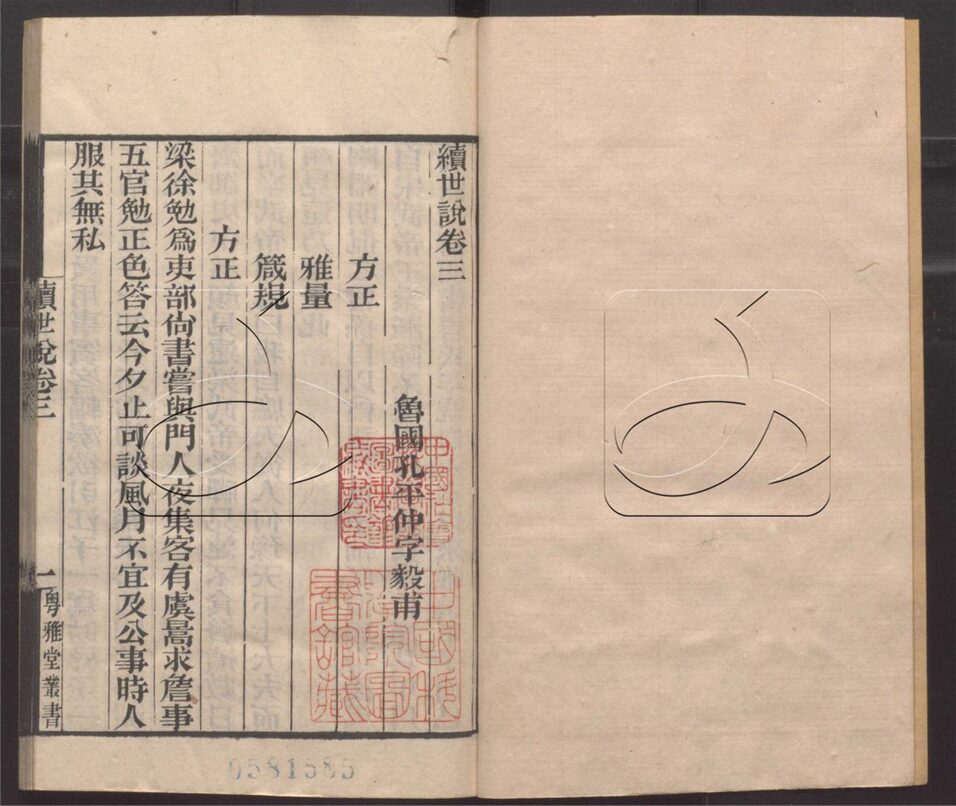 續世說卷三
魯國孔平仲字毅甫
方正
雅量
箴規
方正
梁徐勉爲吏部尙書嘗與門人夜集客有虞暠求詹事
五官勉正色答云今夕止可談風月不宜及公事時人
服其無私
續世說卷三
一
粵雅堂叢書
0581585